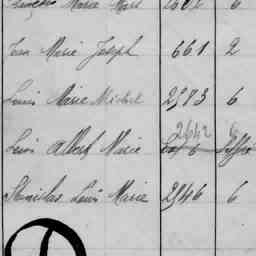 Marie 2602 6
Jean Marie Joseph 661 2
Louis Marie Michel 2973 6
2642 6
Louis Albert Marie
Stanislas Louis Marie 2946 6